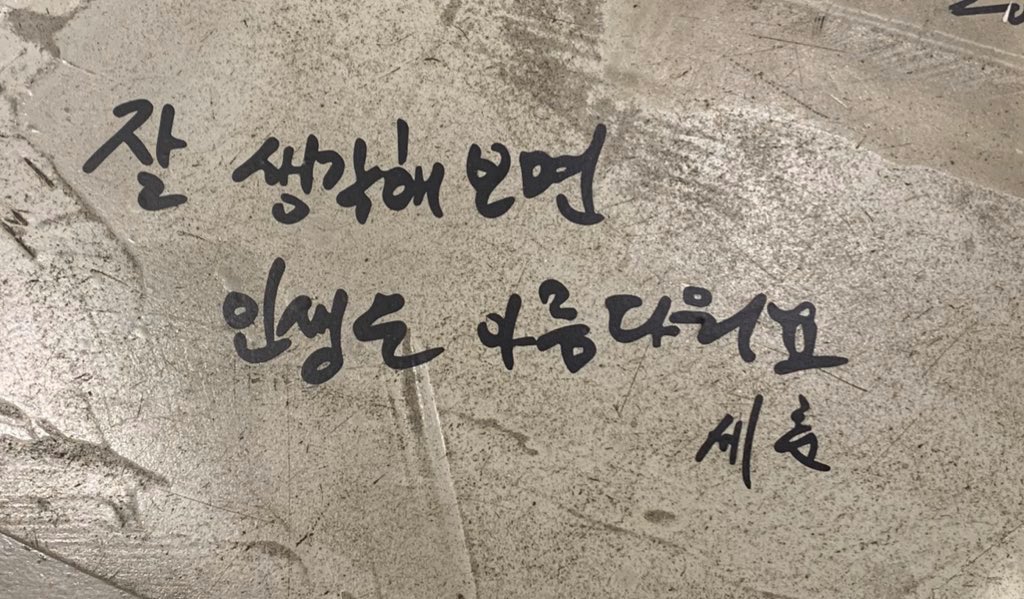 잘 생각해 보면
인생도 아름다워요